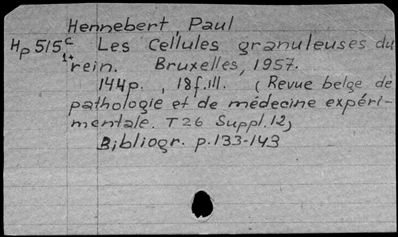 Hennebert, Paul
Hp 515c Les Cellules granuleuses du
1+ rein. Bruxelles, 1957.
144p., 18 f. ill. (Revue belge de
pathologie et de médecine expéri-
mentale. T26 Suppl. 12)
Bibliogr. p. 133-143